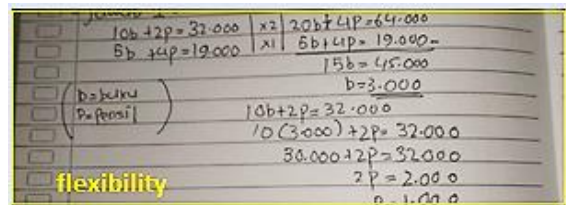 10b + 2p = 32.000 | x2 | 20b + 4p = 64.000
5b + 4p = 19.000 | x1 | 5b + 4p = 19.000 -
15b = 45.000
b = 3.000
(b = buku
p = pensil)
10b + 2p = 32.000
10 (3.000) + 2p = 32.000
30.000 + 2p = 32.000
2p = 2.000
flexibility